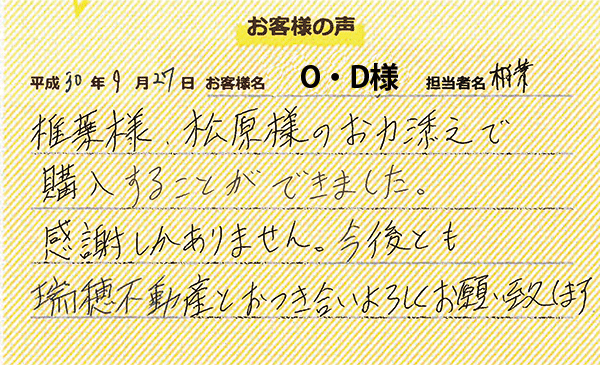 お客様の声
平成30年9月27日 お客様名 O・D様 担当者名 椎葉
椎葉様、松原様のお力添えで
購入することができました。
感謝しかありません。今後とも
瑞穂不動産とおつき合いよろしくお願い致します